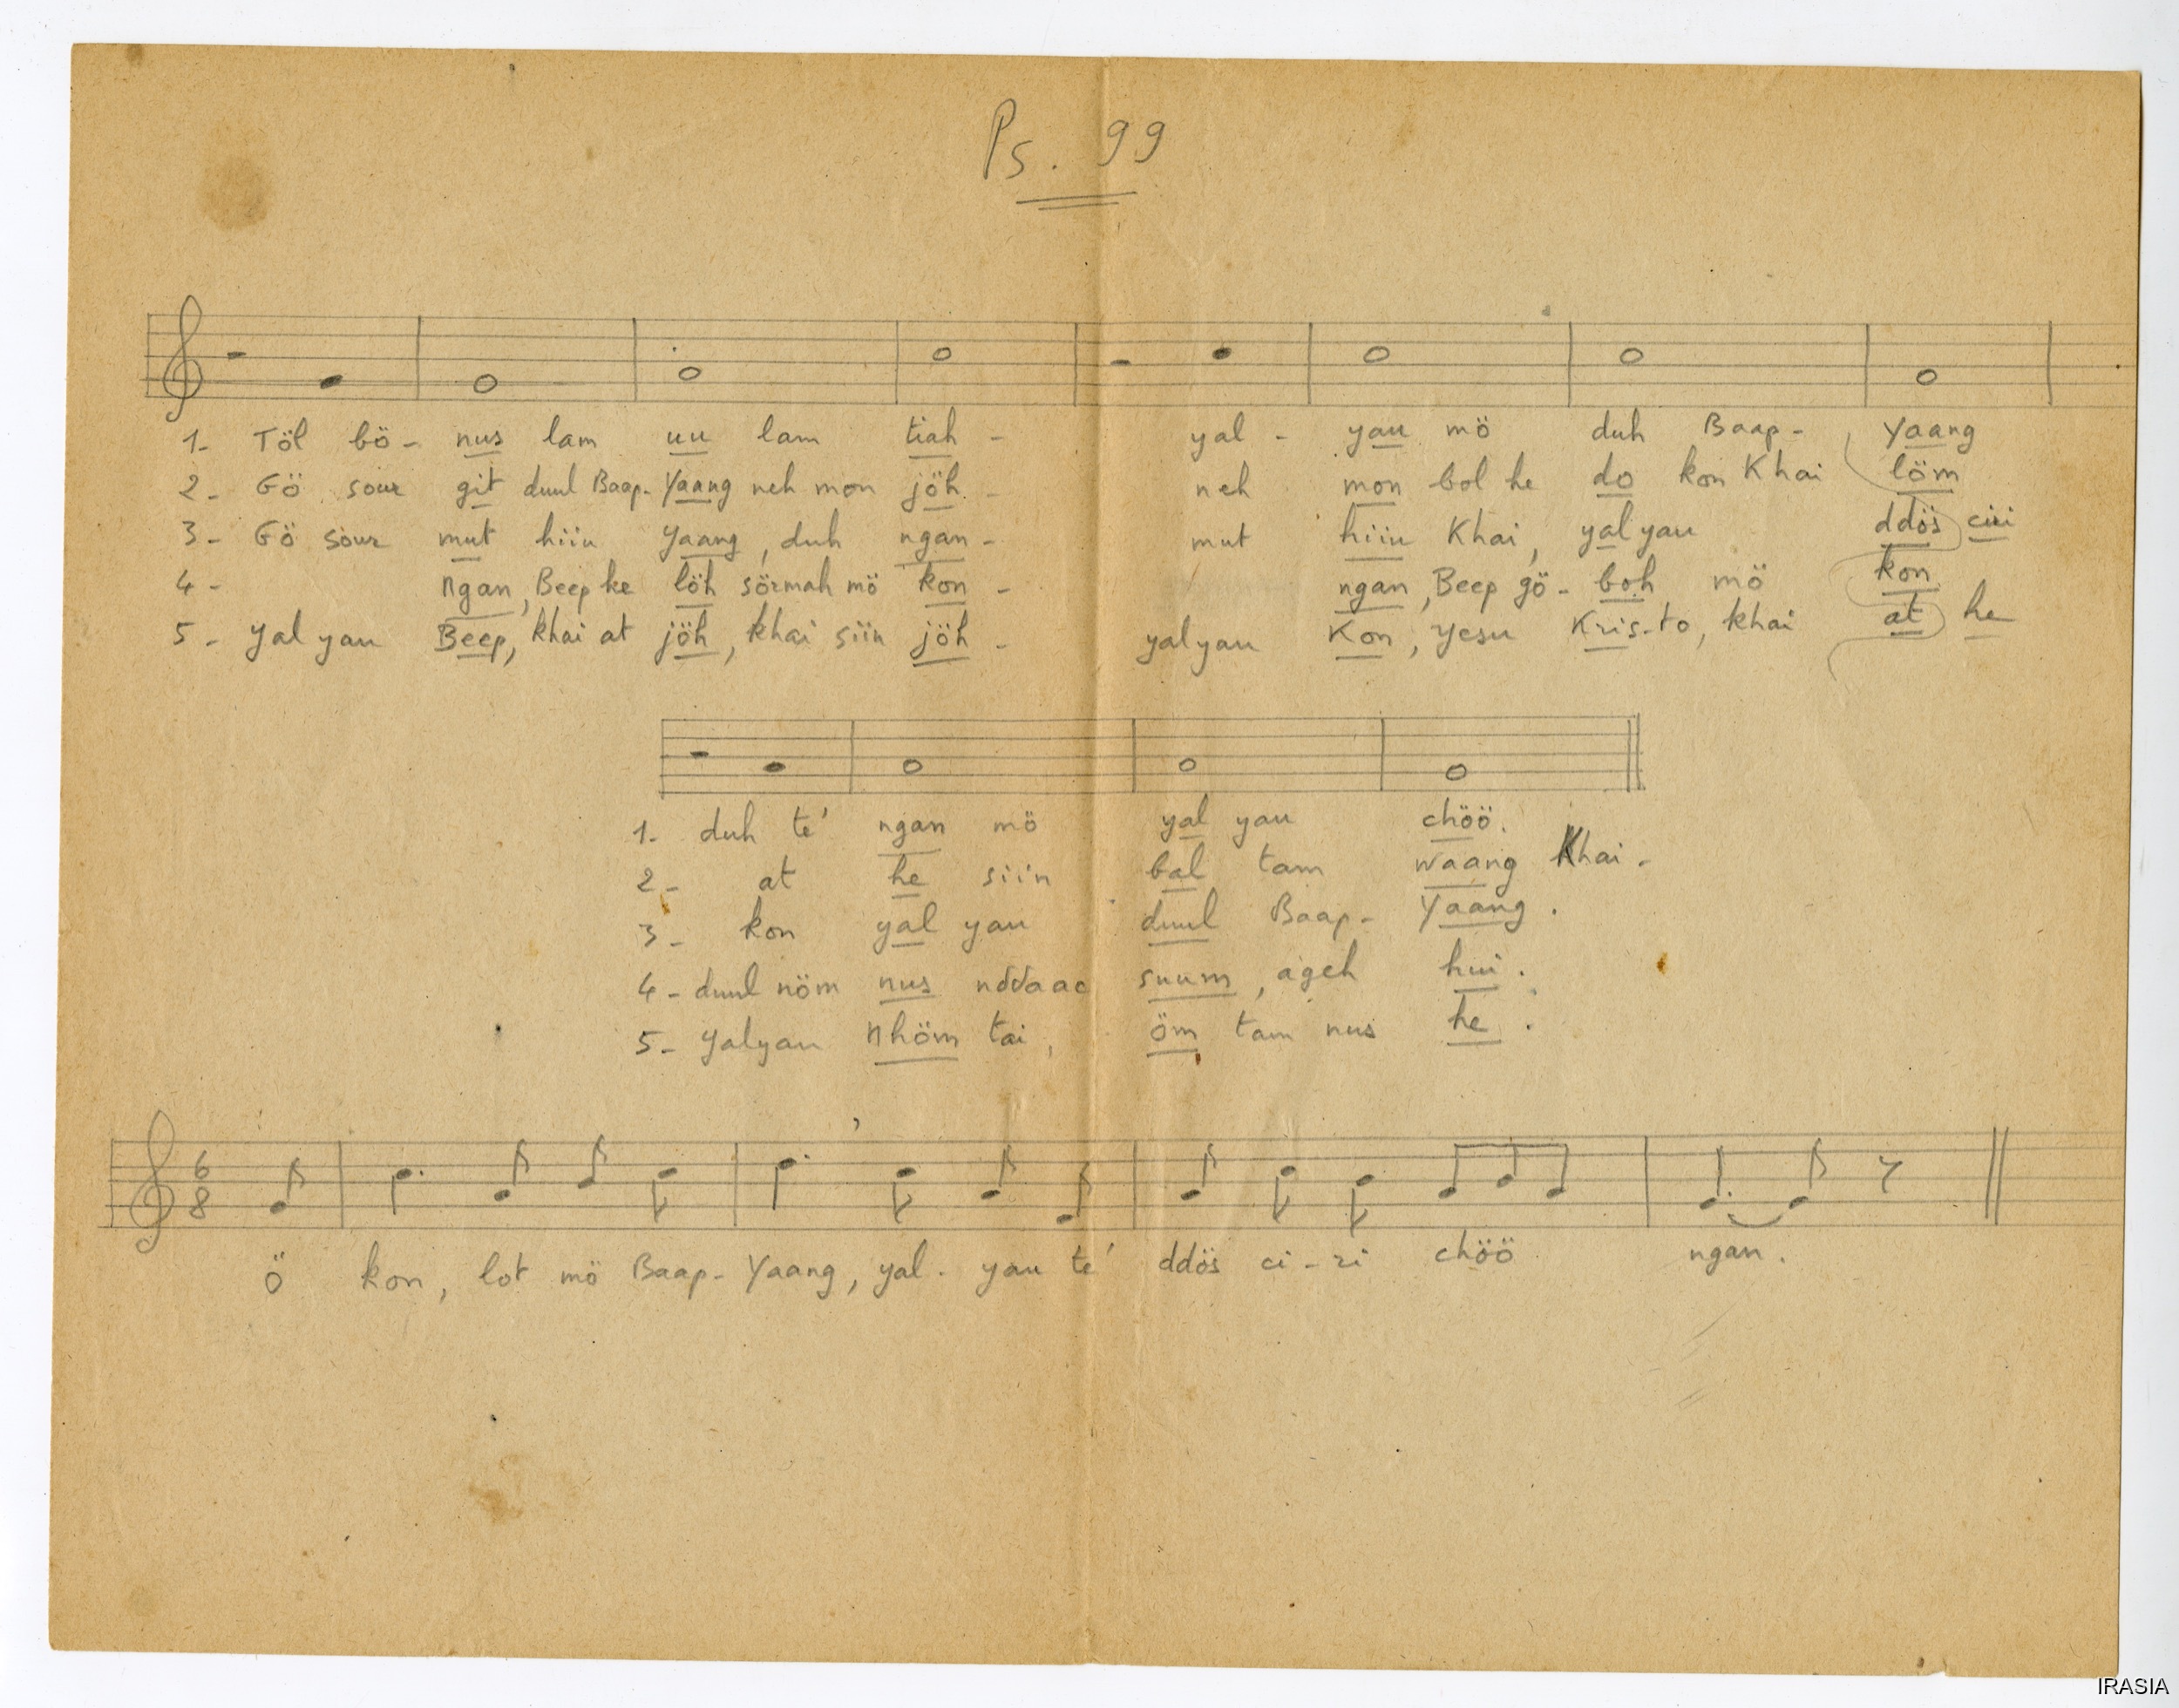 Ps. 99
1- Töl bö- nus lam uu lam tiah - yal- yau mö duh Baap- Yaang
2- Gö sour git duul Baap- Yaang neh mon jöh - neh mon bol he do kon Khai löm
3- Gö sour mut hiiu Yaang, duh ngan- mut hiiu Khai, yal yau ddös ciri
4- ngan, Beep he löh sörmah mö kon - ngan, Beep gö- boh mö kon
5- yal yau Beep, khai at jöh, khai siin jöh - yal yau Kon, Yesu Kris-to, khai at he
1- duh te' ngan mö yal yau chöö.
2- at he siin bal tam waang Khai.
3- kon yal yau duul Baap- Yaang.
4- duul nöm nus nddaac suum, ageh hui.
5- Yal yau Nhöm tai, öm tam nus he.
6
8
Ö kon, lot mö Baap- Yaang, yal- yau te' ddös ci-ri chöö ngan.
IRASIA